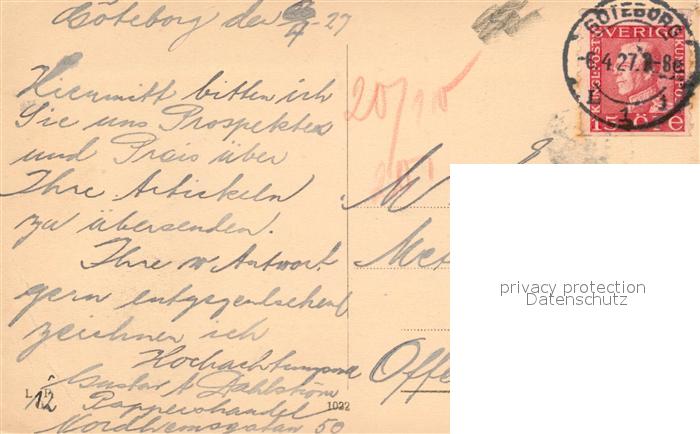 Göteborg den 6/4-27
Hiermitt bitten ich
Sie uns Prospekter
und Prais über
Ihre Artickeln
zu übersenden.
Ihre w Antwort
gern entgegensehend
zeichner ich
Hochachtungsvoll
Gustav A Dahlström
Pappershandel
Nordhemsgatan 50
L
12
1022
20/10
M
Met
Offe
GÖTEBORG
-6.4.27.
SVERIGE
KUNGL. POST
15 ÖRE
privacy protection
Datenschutz